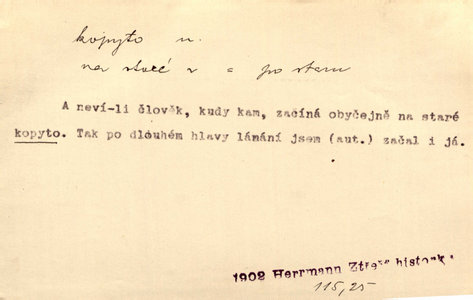 kopyto n.
na staré k = po staru
A neví-li člověk, kudy kam, začíná obyčejně na staré
kopyto. Tak po dlouhém hlavy lámání jsem (aut.) začal i já.
1902 Herrmann histork
115,25